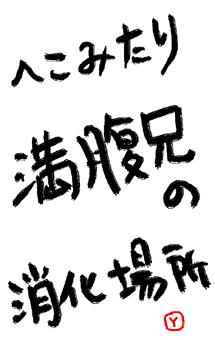 へこみたり
満腹兄の
消化場所
Y